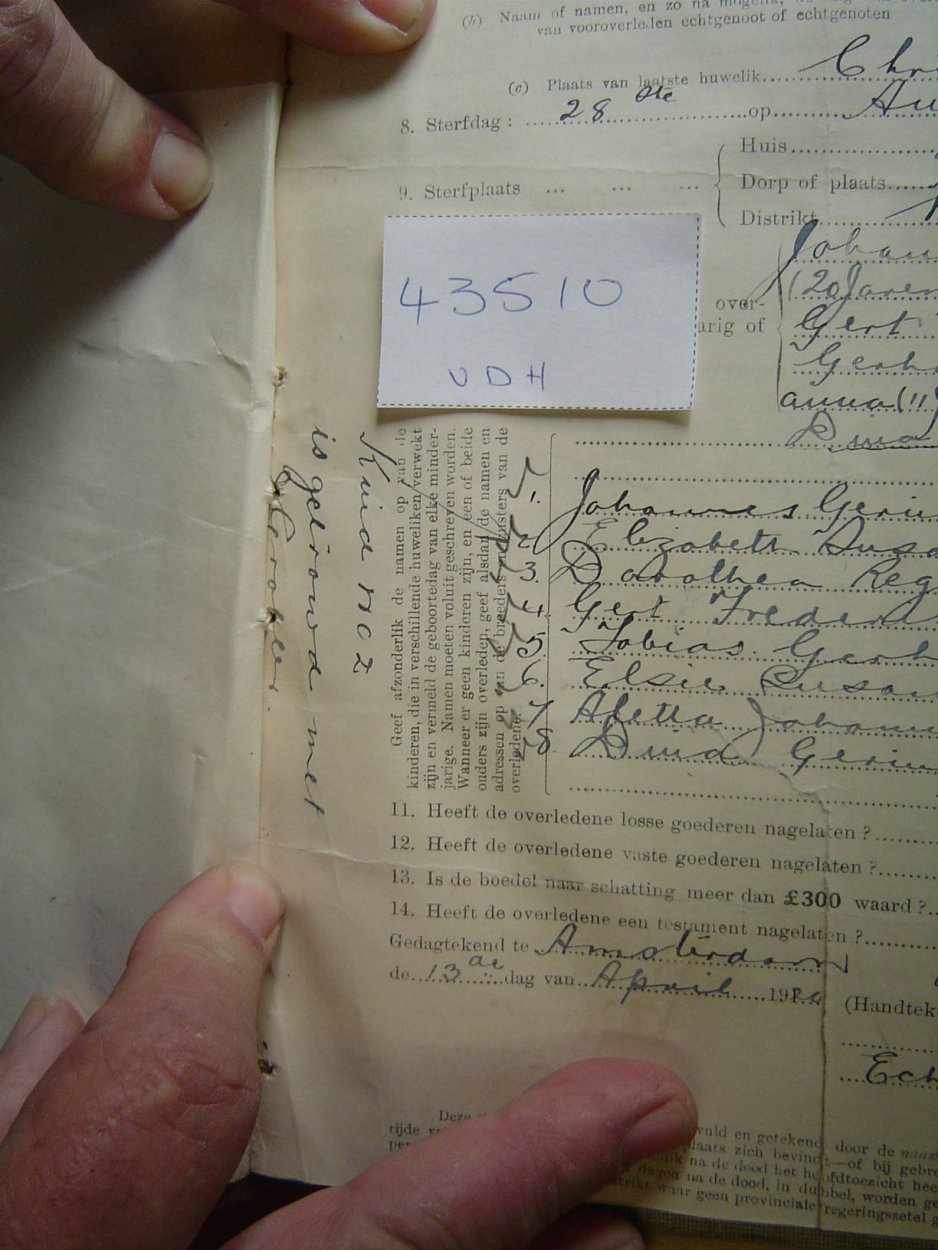 (b) Naam of namen, en zo na mogelik,
van vooroverleden echtgenoot of echtgenoten
(c) Plaats van laatste huwelik Chri
8. Sterfdag: 28 ste op Au
9. Sterfplaats ... ... ...
Huis
Dorp of plaats
Distrikt
43510
VDH
over-
arig of
Johan
(20 Jaren
Gert
Gerh
anna (11)
Dina
Kind no 2
is getrouwd met
Geef afzonderlik de namen op van de
kinderen, die in verschillende huweliken verwekt
zijn en vermeld de geboortedag van elke minder-
jarige. Namen moeten voluit geschreven worden.
Wanneer er geen kinderen zijn, en een of beide
ouders zijn overleden, geef alsdan de namen en
adressen op van de broeders en zusters van de
overledene.
1. Johannes Geri
2. Elizabeth Susa
3. Dorothea Reg
4. Gert Frederi
5. Tobias Gerh
6. Elsie Susan
7. Aletta Johann
8. Dina Geri
11. Heeft de overledene losse goederen nagelaten ?
12. Heeft de overledene vaste goederen nagelaten ?
13. Is de boedel naar schatting meer dan £300 waard ?
14. Heeft de overledene een testament nagelaten ?
Gedagtekend te Amsterdam
de 13 de dag van April 1920
(Handtek
Ech
Deze
rijde
vuld en getekend door de naas
plaats zich bevind—of bij gebre
lik na de dood het hoofdtoezicht hee
dagen na de dood, in dubbel, worden ge
strikt waar geen provinciale regeringszetel